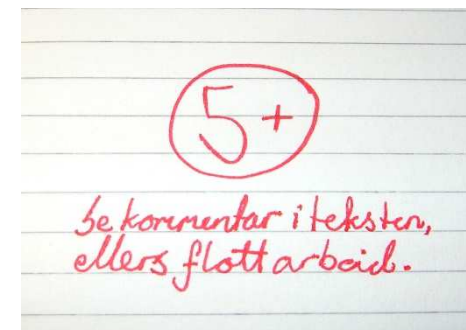 5+
Se kommentar i teksten,
ellers flott arbeid.